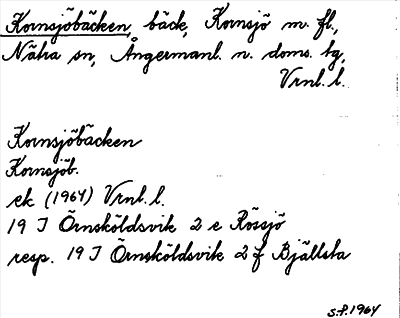 Kornsjöbäcken, bäck, Kornsjö m. fl.,
Nätra sn, Ångermanl. n. doms. tg,
Vrnl. l.
Kornsjöbäcken
Kornsjöb.
ek (1964) Vrnl. l.
19 I Örnsköldsvik 2 e Rössjö
resp. 19 I Örnsköldsvik 2 f Bjällsta
S.P. 1964